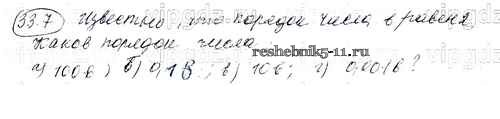 33.7 Известно, что порядок числа в равен 2
Каков порядок числа
а) 100в; б) 0,1в; в) 10в; г) 0,001в?
reshebnik5-11.ru